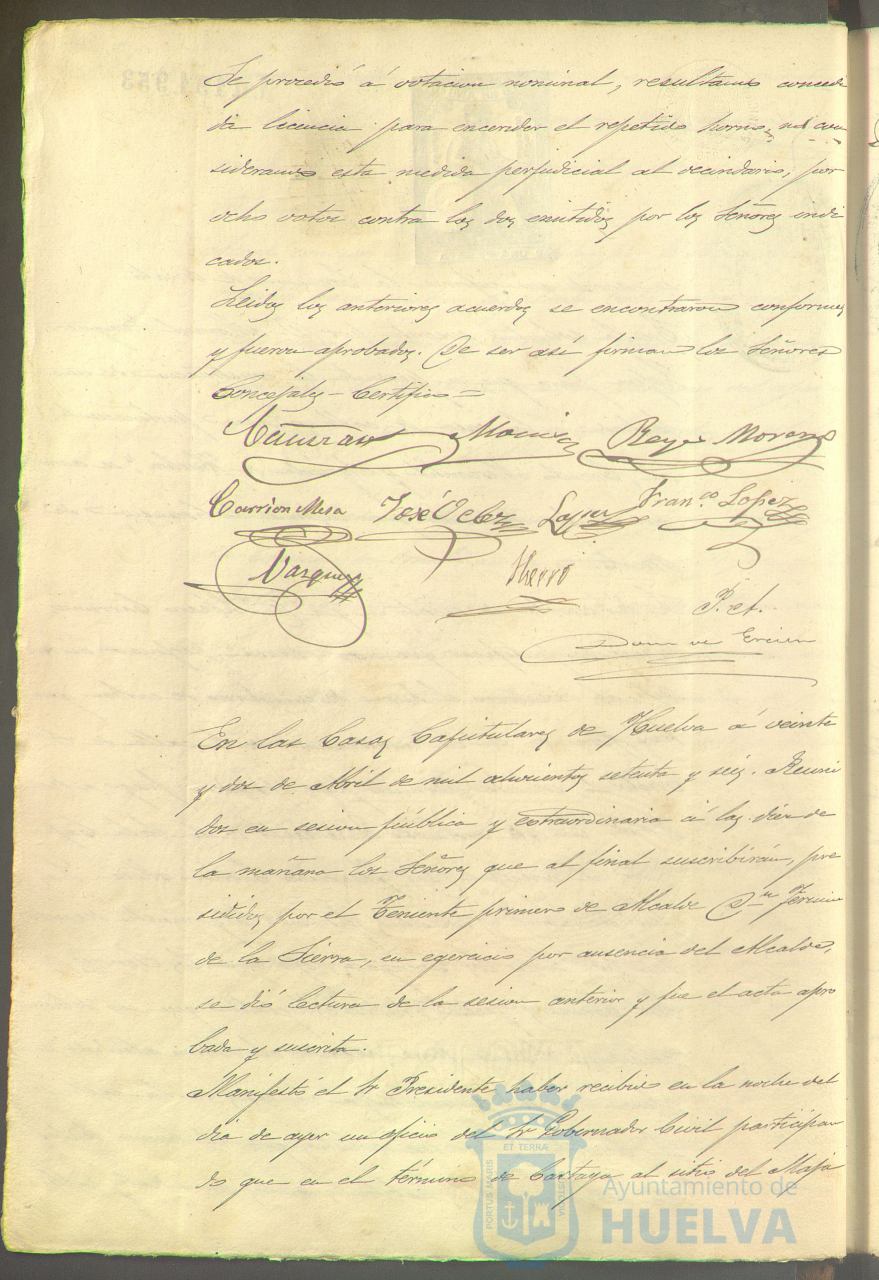 Se procedió á votacion nominal, resultando concedi
da licencia para encender el repetido horno, no con
siderando esta medida perjudicial al vecindario, por
ocho votos contra los dos emitidos por los Señores indi
cados.
Leidos los anteriores acuerdos se encontraron conformes
y fueron aprobados. De ser así firman los Señores
Concejales - Certifico =
Reyes Moreno
Carrion Mesa José Velez Lopez Franco Lopez
Vazquez
P. A.
En las Casas Capitulares de Huelva á veinte
y dos de Abril de mil ochocientos setenta y seis. Reuni
dos en sesion pública y extraordinaria á las diez de
la mañana los Señores que al final suscribirán, pre
sididos por el Teniente primero de Alcalde Dn
de la Sierra, en egercicio por ausencia del Alcalde,
se dió lectura de la sesion anterior y fue el acta apro
bada y suscrita.
Manifestó el Sr Presidente haber recibido en la noche del
dia de ayer un oficio del Sr Gobernador Civil participan
do que en el término de Cartaya al sitio del
PORTUS MARIS ET TERRÆ CUSTODIA
Ayuntamiento de
HUELVA